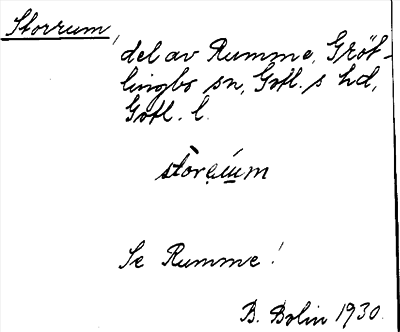 Storrum,
del av Rumme, Gröt-
lingbo sn, Gotl. s hd,
Gotl. l.
Se Rumme!
B. Bolin 1930.